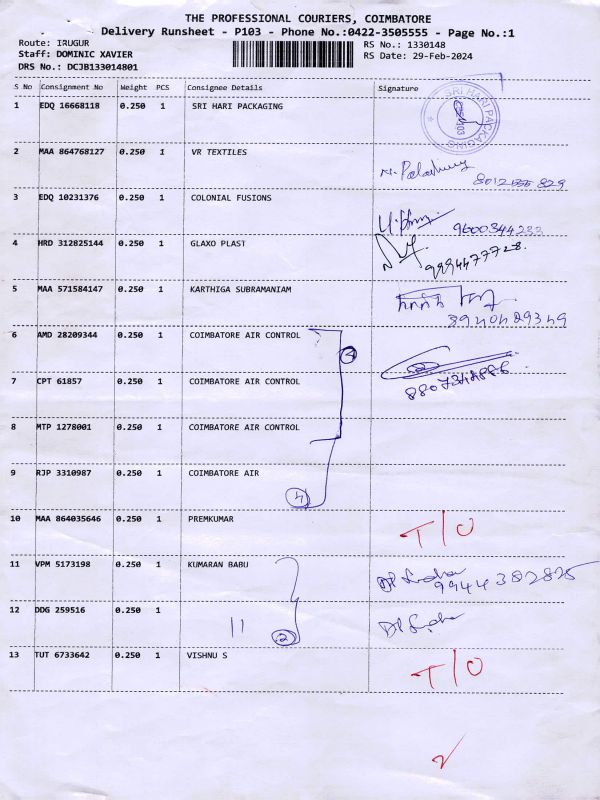 THE PROFESSIONAL COURIERS, COIMBATORE
Delivery Runsheet - P103 - Phone No.:0422-3505555 - Page No.:1
Route: IRUGUR
Staff: DOMINIC XAVIER
DRS No.: DCJB133014801
RS No.: 1330148
RS Date: 29-Feb-2024
S No Consignment No Weight PCS Consignee Details Signature
1 EDQ 16668118 0.250 1 SRI HARI PACKAGING
SRI HARI PACKAGING
2 MAA 864768127 0.250 1 VR TEXTILES
3 EDQ 10231376 0.250 1 COLONIAL FUSIONS
4 HRD 312825144 0.250 1 GLAXO PLAST
9994477728
5 MAA 571584147 0.250 1 KARTHIGA SUBRAMANIAM
6 AMD 28209344 0.250 1 COIMBATORE AIR CONTROL
7 CPT 61857 0.250 1 COIMBATORE AIR CONTROL
8 MTP 1278001 0.250 1 COIMBATORE AIR CONTROL
9 RJP 3310987 0.250 1 COIMBATORE AIR
4
10 MAA 864035646 0.250 1 PREMKUMAR
T/O
11 VPM 5173198 0.250 1 KUMARAN BABU
9944382825
12 DDG 259516 0.250 1
11
2
13 TUT 6733642 0.250 1 VISHNU S
T/O